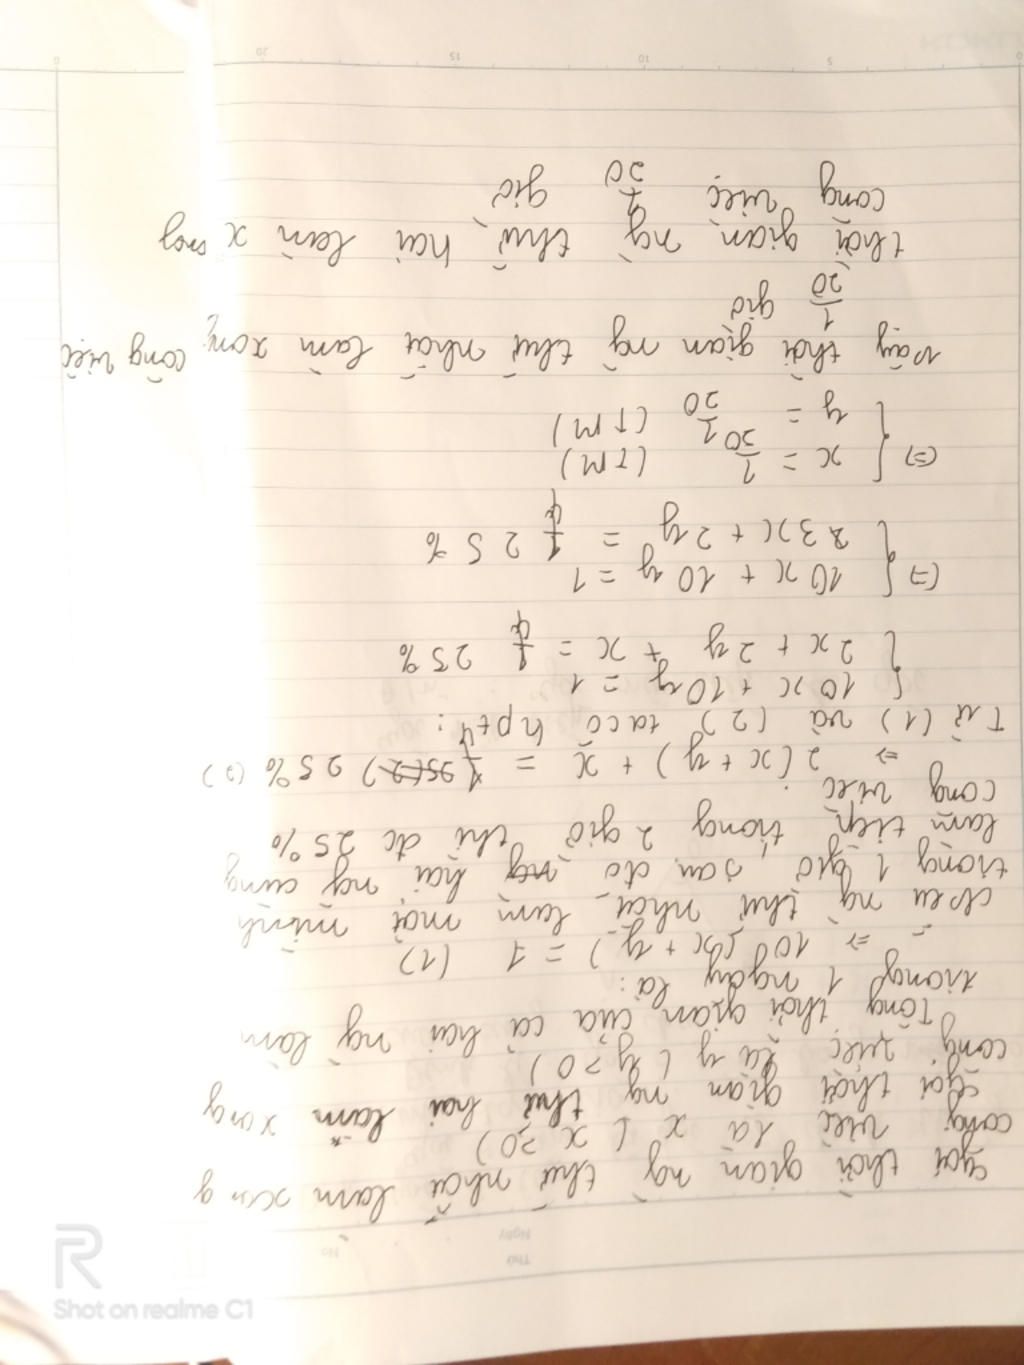 Thứ
Ngày
No
Gọi thời gian ng thứ nhất làm xong
công việc là x ( x >0)
Gọi thời gian ng thứ hai làm xong
công việc là y ( y >0)
Tổng thời gian của cả hai ng làm
trong 1 ngày là:
=> 10 (x + y) = 1 (1)
nếu ng thứ nhất làm một mình
trong 1 giờ, sau đó hai ng cùng
làm tiếp trong 2 giờ thì dc 25%
công việc
=> 2 (x + y) + x = 25% (2)
Từ (1) và (2) ta có hpt:
{ 10x + 10y = 1
{ 2x + 2y + x = 25%
(=) { 10x + 10y = 1
{ 3x + 2y = 25%
(=) { x = 1/20 (TM)
{ y = 1/20 (TM)
vậy thời gian ng thứ nhất làm xong công việc
1/20 giờ
thời gian ng thứ hai làm xong
công việc 1/20 giờ
5 10 15 20
Shot on realme C1